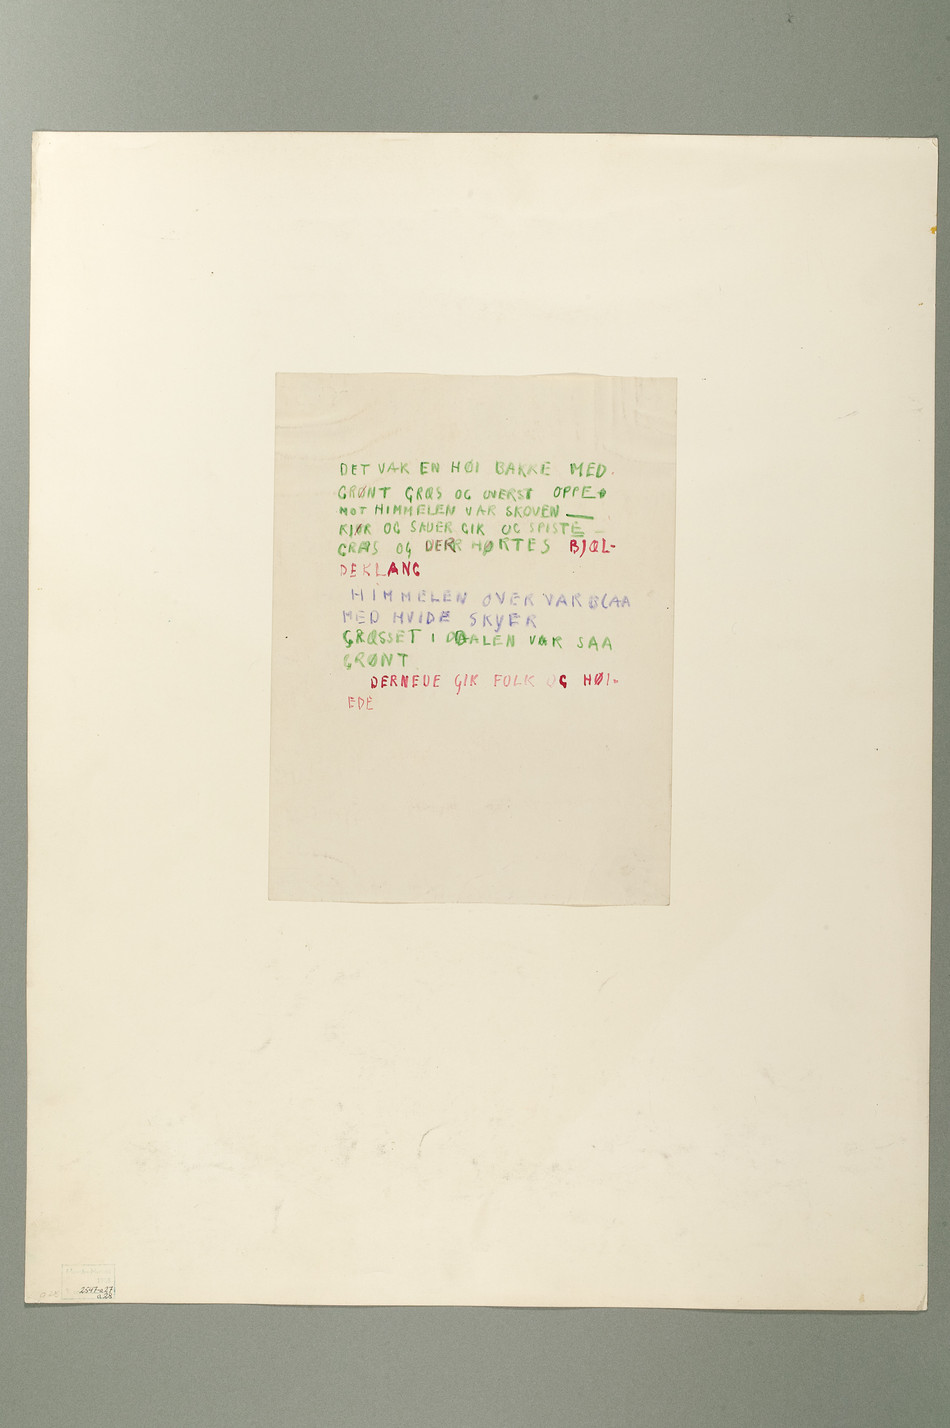 DET VAR EN HØI BAKKE MED
GRØNT GRÆS OG ØVERST OPPE
MOT HIMMELEN VAR SKOVEN —
KJØR OG SAUER GIK OG SPISTE –
GRÆS OG DER HØRTES BJÆL-
DEKLANG
HIMMELEN OVER VAR BLAA
MED HVIDE SKYER
GRÆSSET I DALEN VAR SAA
GRØNT
DERNEDE GIK FOLK OG HØI-
EDE
2547-a27
a28